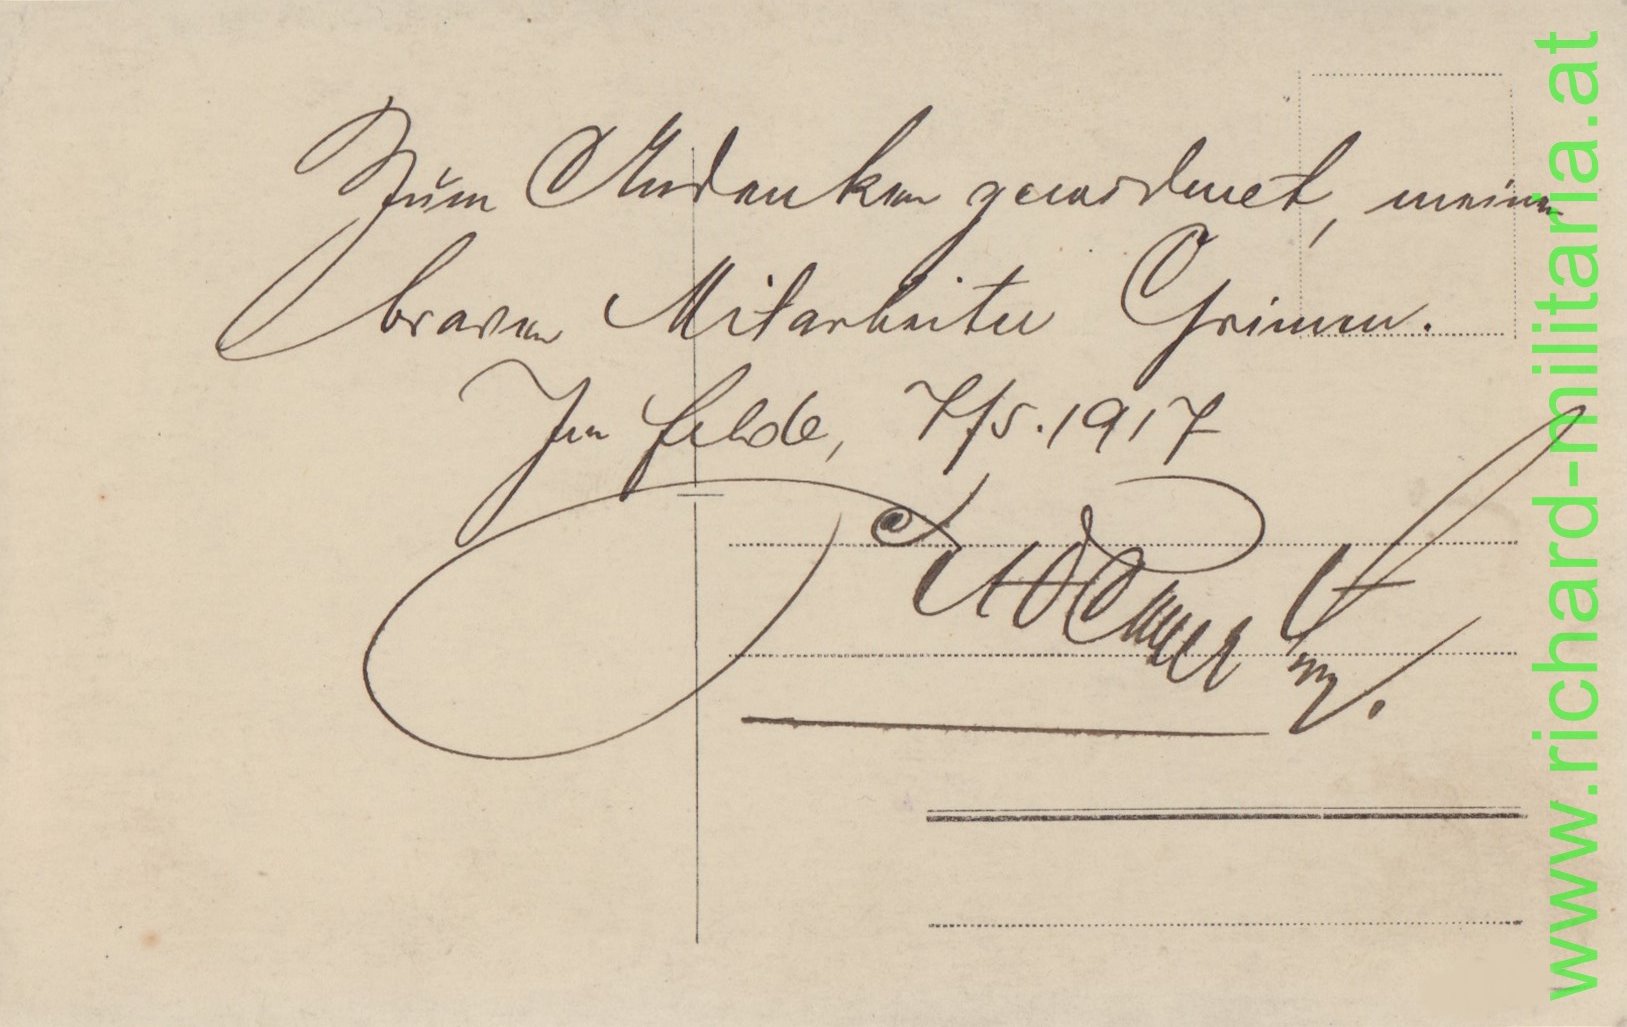 Zum Andenken gewidmet, meinem
braven Mitarbeiter Grimm.
Im Felde, 7/5.1917
www.richard-militaria.at